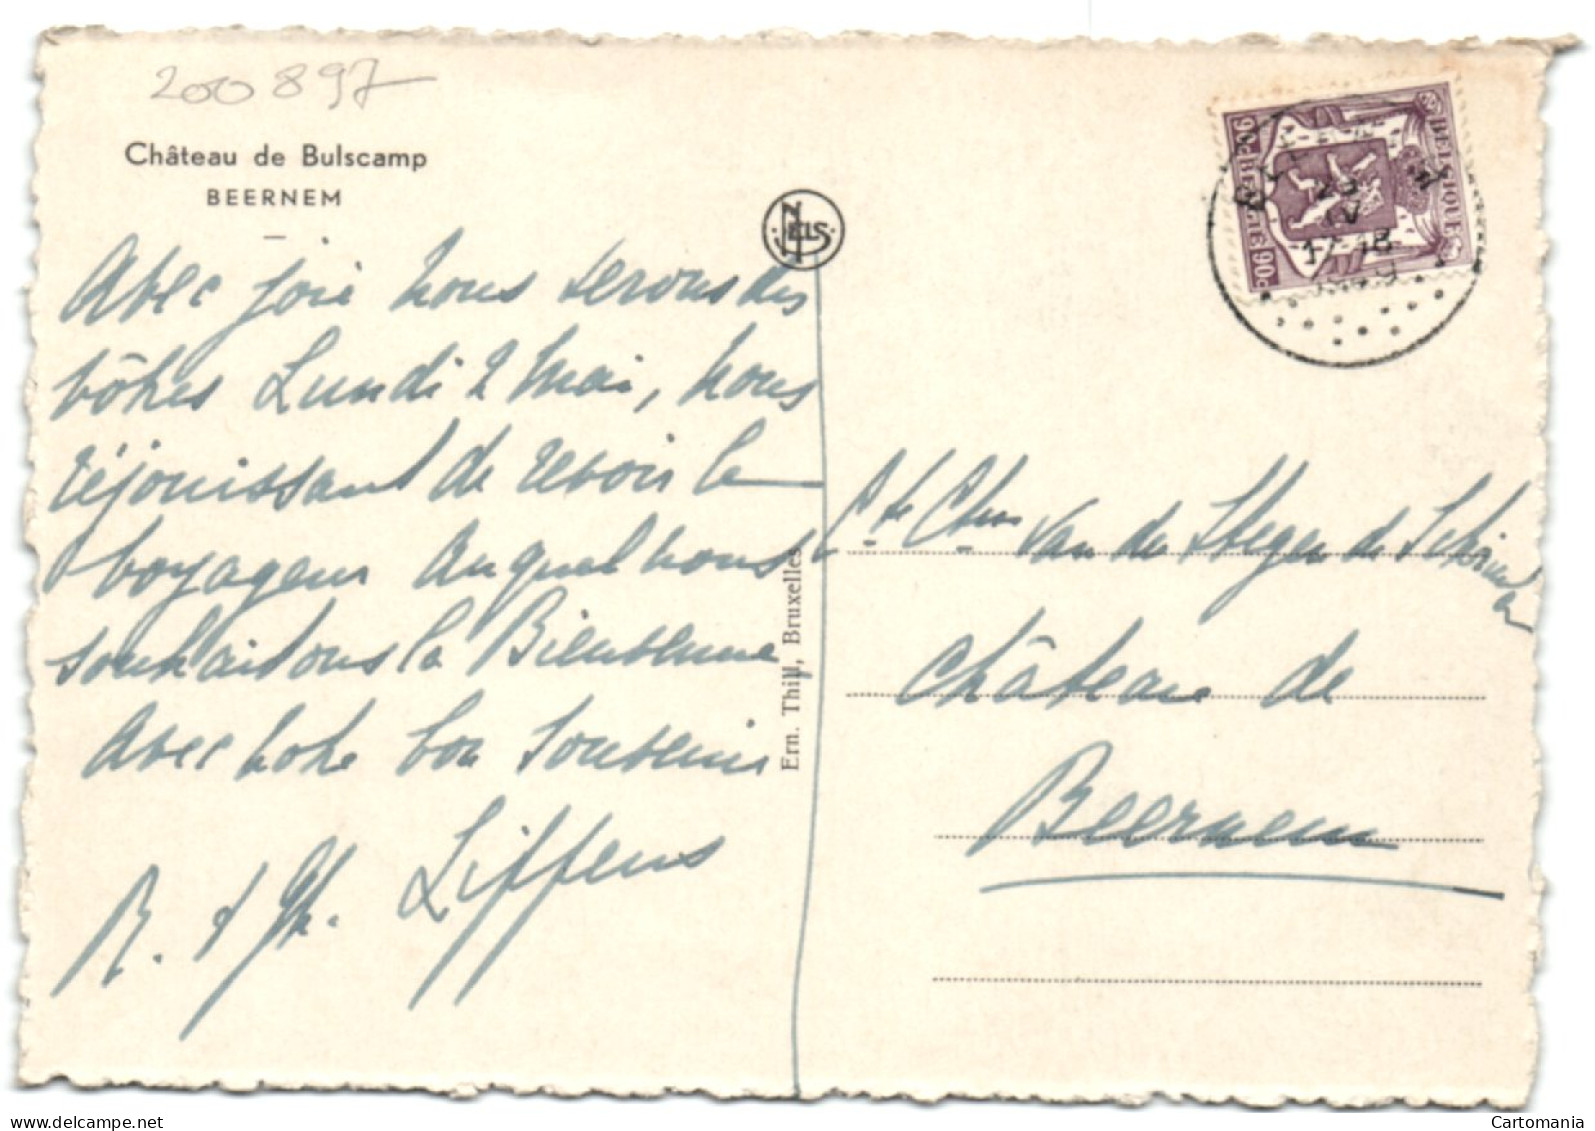 200897
Château de Bulscamp
BEERNEM
Avec joie nous serons des
vôtres Lundi 2 Mai, nous
réjouissant de revoir le
voyageur auquel nous
souhaitons la Bienvenue
Avec notre bon souvenir
R. Lippens
NELS
Ern. Thill, Bruxelles
BELGIQUE
BELGIË
17-18
Cte Ctesse van der Stegen de Schrieck
Château de
Beernem
delcampe.net
Cartomania